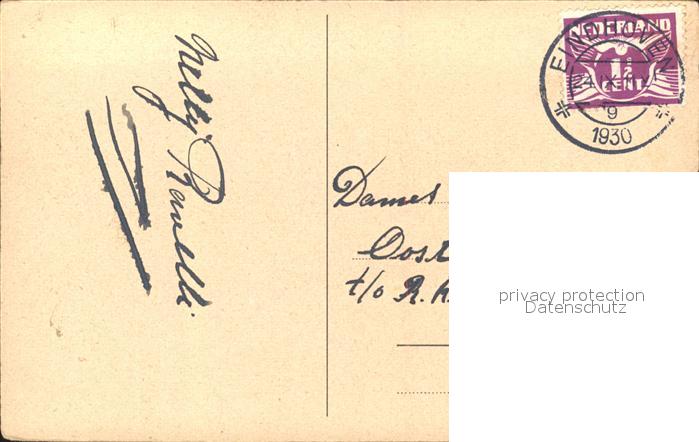 Nelly Ravelli
NEDERLAND
1½
CENT
EINDHOVEN
9
1930
Dames
Oost
t/o R.
privacy protection
Datenschutz